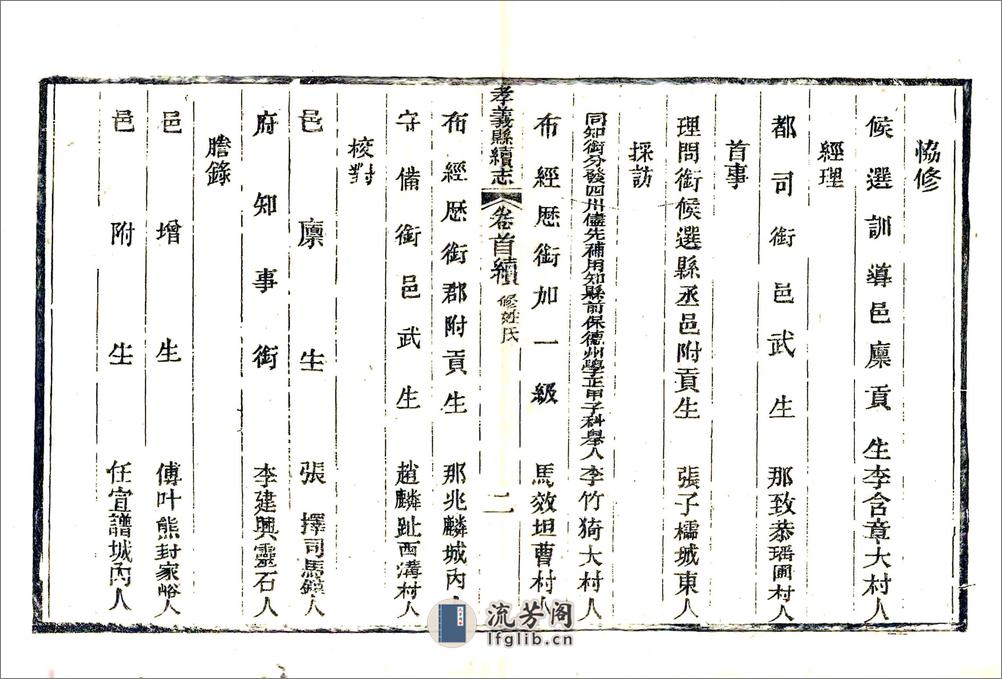 恊修
候選訓導邑廪貢生李含章大村人
經理
都司銜邑武生那致恭瑶圃村人
首事
理問銜候選縣丞邑附貢生張子檽城東人
採訪
同知銜分發四川儘先補用知縣前保德州學正甲子科舉人李竹猗大村人
布經歷銜加一級馬效坦曹村人
孝義縣續志 卷首續 修姓氏 二
布經歷銜郡附貢生那兆麟城內人
守備銜邑武生趙麟趾西溝村人
校對
邑廪生張擇司馬鎮人
府知事銜李建興靈石人
謄錄
邑增生傅叶熊封家峪人
邑附生任宜譜城內人
流芳阁
lfglib.cn